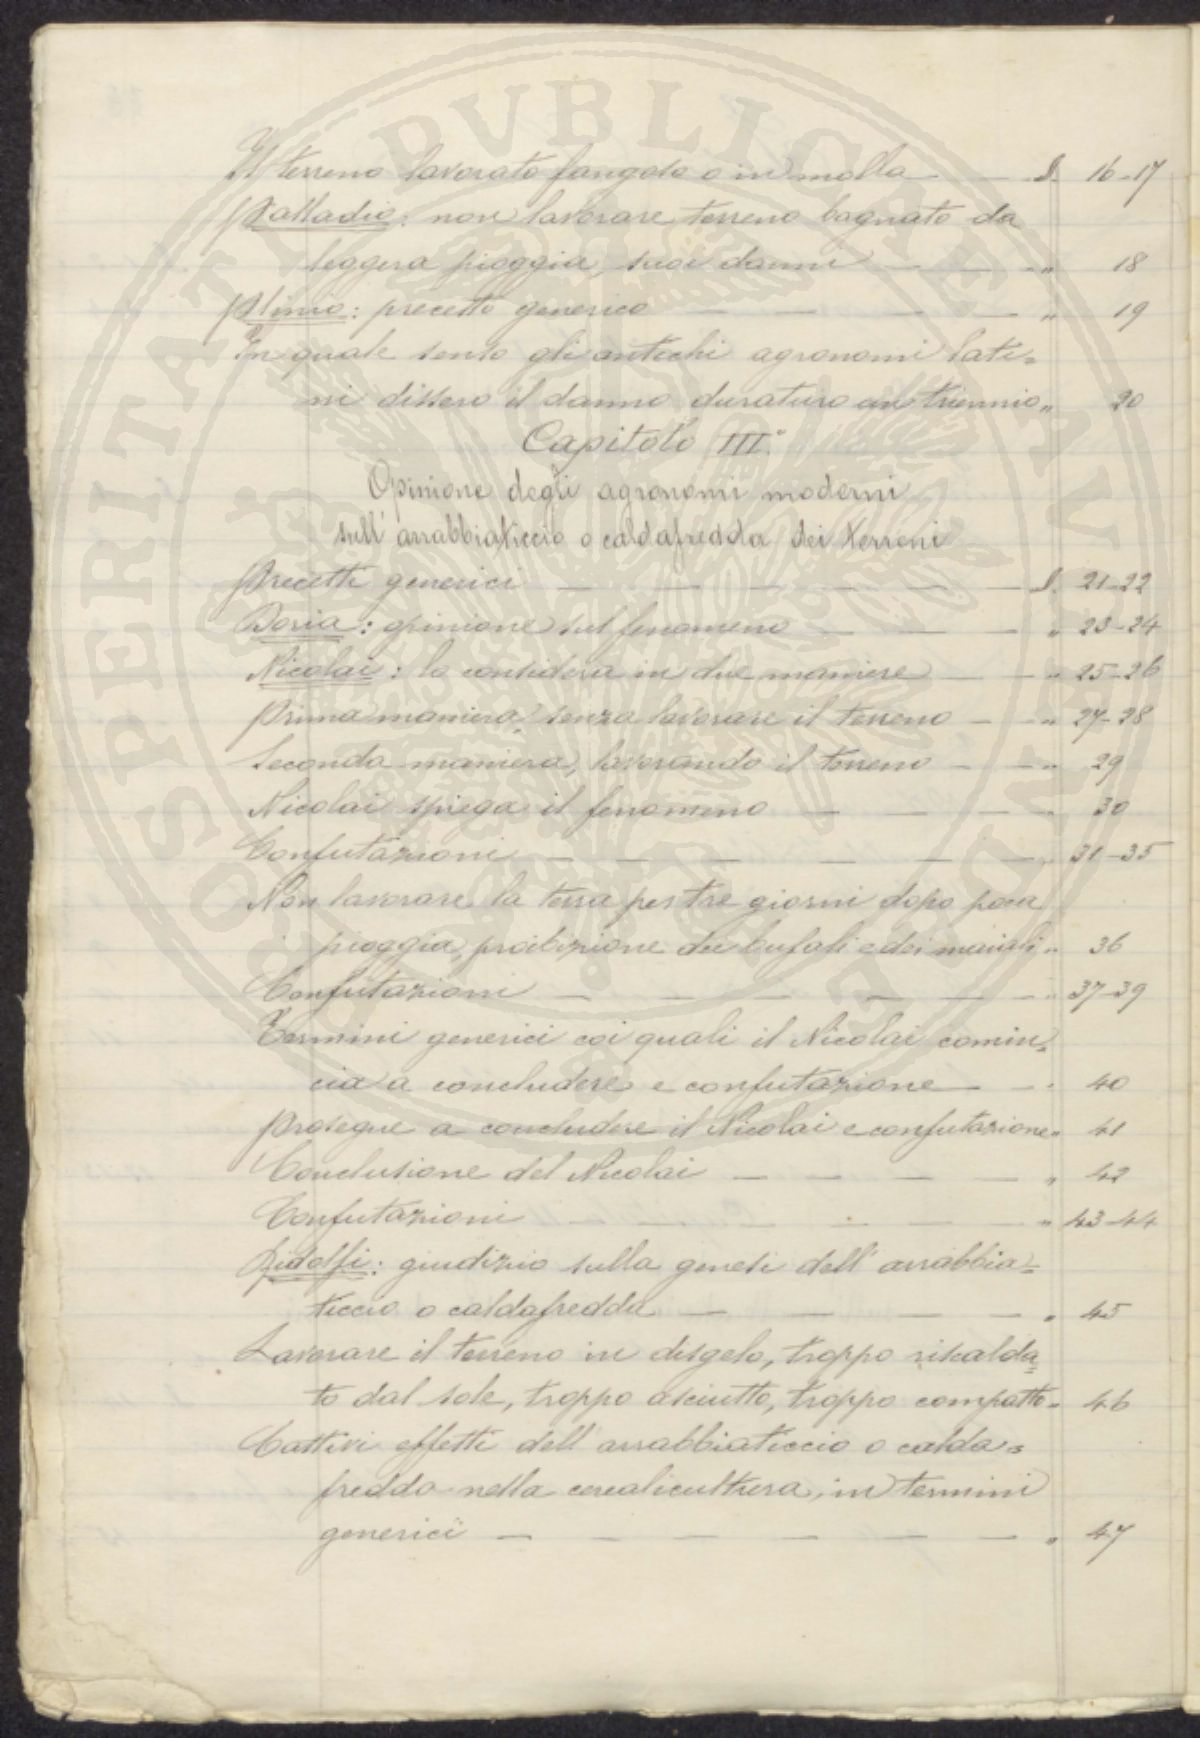 Il terreno lavorato fangoso o in molla — — §. 16-17
Palladio: non lavorare terreno bagnato da
leggera pioggia, suoi danni — — " 18
Plinio: precetto generico — — — — " 19
In quale senso gli antichi agronomi lati=
ni dissero il danno duraturo un triennio " 20
Capitolo III.°
Opinione degli agronomi moderni
sull'arrabbiaticcio o caldafredda dei terreni
Precetti generici — — — — — — §. 21-22
Doria: opinione sul fenomeno — — — " 23-24
Nicolai: lo considera in due maniere — — " 25-26
Prima maniera, senza lavorare il terreno — — " 27-28
Seconda maniera, lavorando il terreno — — " 29
Nicolai spiega il fenomeno — — — " 30
Confutazioni — — — — — — " 31-35
Non lavorare la terra per tre giorni dopo poca
pioggia, proibizione dei bufali e dei maiali " 36
Confutazioni — — — — — — " 37-39
Termini generici coi quali il Nicolai comin=
cia a concludere e confutazione — — " 40
Prosegue a concludere il Nicolai e confutazione " 41
Conclusione del Nicolai — — — — " 42
Confutazioni — — — — — " 43-44
Ridolfi: giudizio sulla genesi dell'arrabbia=
ticcio o caldafredda — — — — " 45
Lavorare il terreno in disgelo, troppo riscalda=
to dal sole, troppo asciutto, troppo compatto " 46
Cattivi effetti dell'arrabbiaticcio o calda=
fredda nella cerealicultura, in termini
generici — — — — — — " 47
PROSPERITATI PVBLICAE AVGENDAE